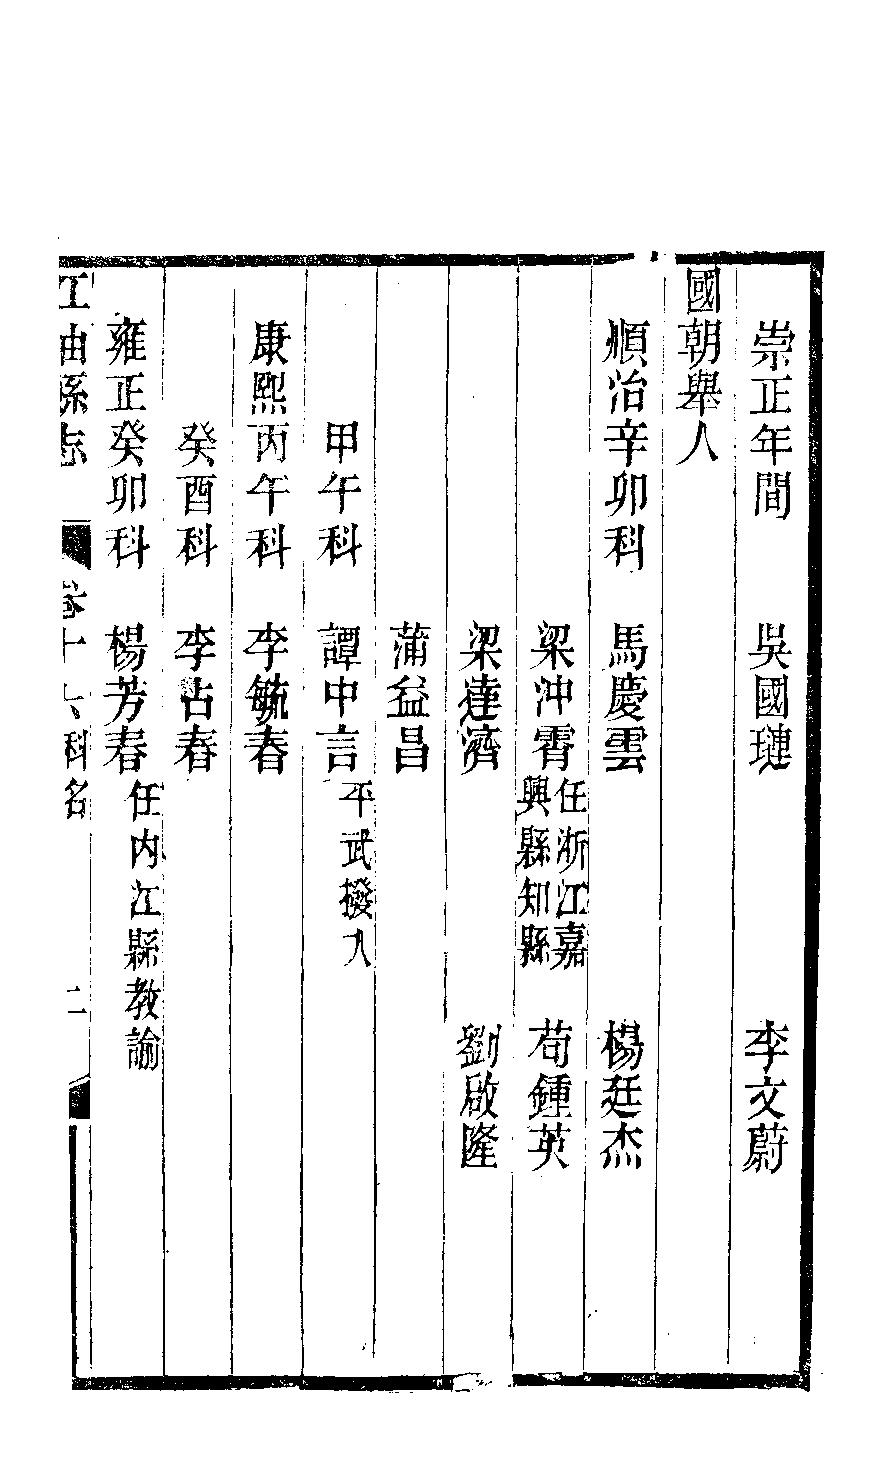 崇正年間 吳國璉 李文蔚
國朝舉人
順治辛卯科 馬慶雲 楊廷杰
梁沖霄 任浙江嘉興縣知縣 苟鍾英
梁達濟 劉啟隆
蒲益昌
甲午科 譚中言 平武撥入
康熙丙午科 李毓春
癸酉科 李占春
雍正癸卯科 楊芳春 任內江縣教諭
江油縣志 卷十六 科名 二